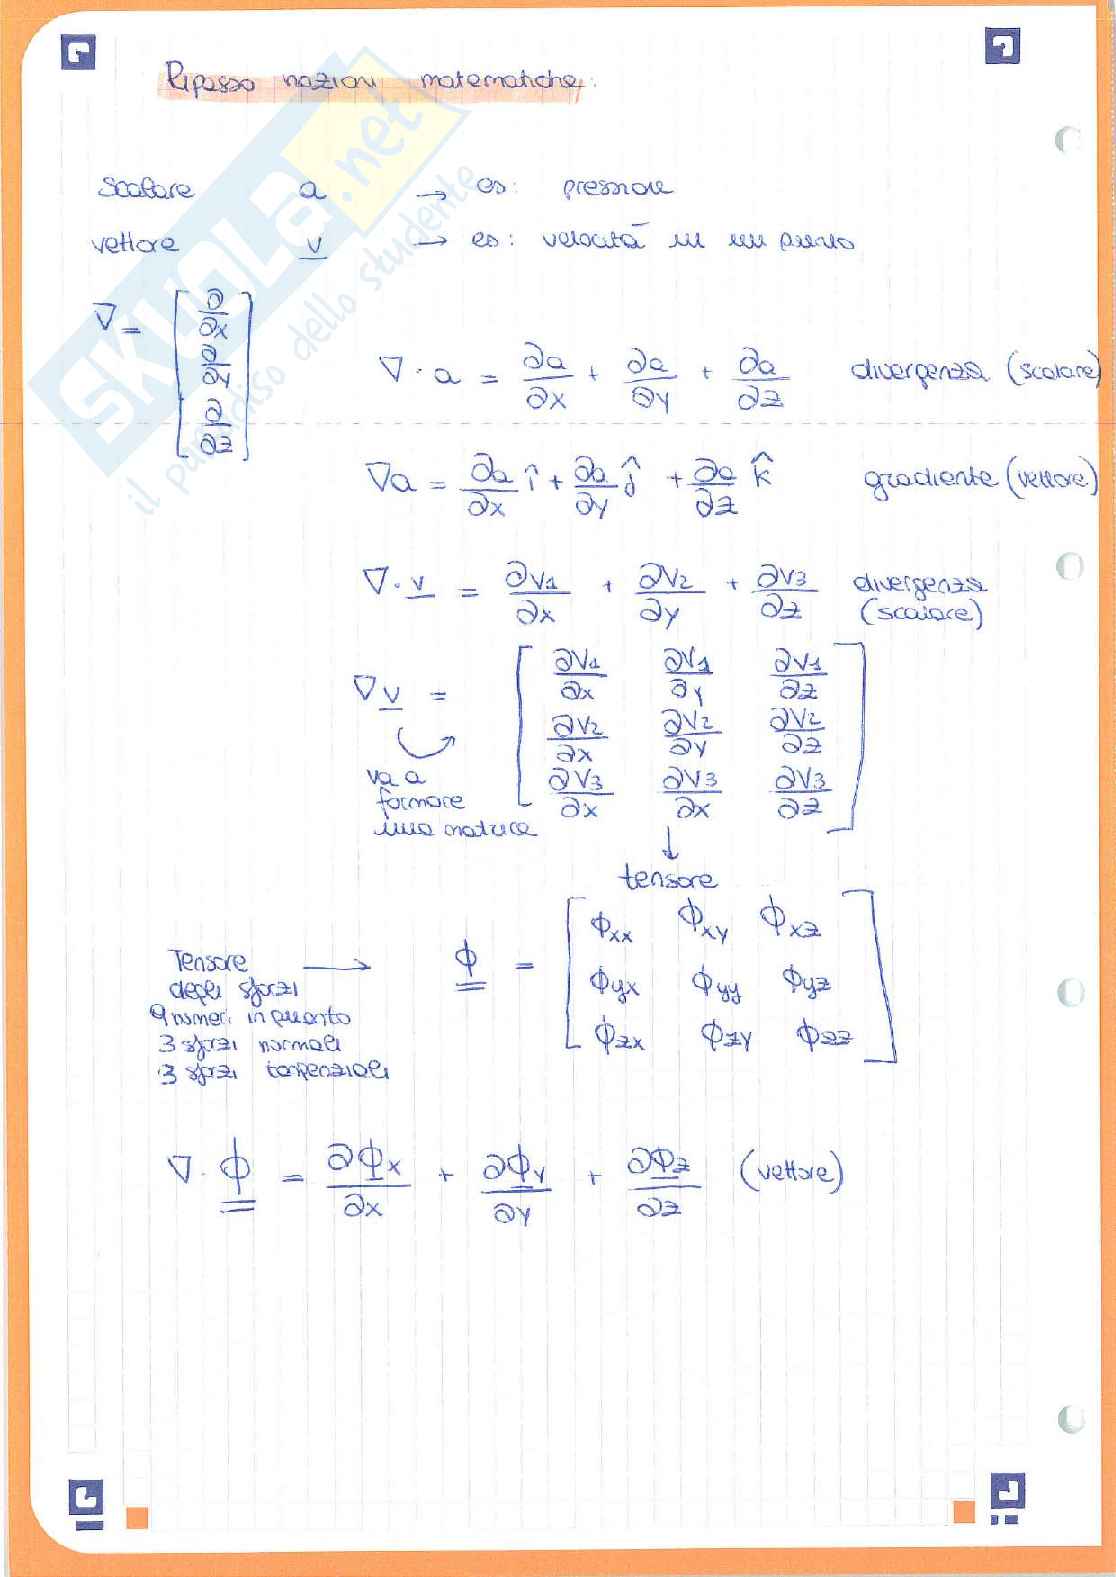 Ripasso nozioni matematiche.
SKUOLA.net
il paradiso dello studente
Scalare a → es: pressione
vettore v → es: velocità in un punto
∇ = [∂/∂x ∂/∂y ∂/∂z]
∇ · a = ∂a/∂x + ∂a/∂y + ∂a/∂z divergenza (scalare)
∇a = ∂a/∂x î + ∂a/∂y ĵ + ∂a/∂z k̂ gradiente (vettore)
∇ · v = ∂v1/∂x + ∂v2/∂y + ∂v3/∂z divergenza
(scalare)
∇v = [∂v1/∂x ∂v1/∂y ∂v1/∂z
∂v2/∂x ∂v2/∂y ∂v2/∂z
∂v3/∂x ∂v3/∂x ∂v3/∂z]
va a
formare
una matrice
↓
tensore
Tensore →
degli sforzi
9 numeri in quanto
3 sforzi normali
3 sforzi tangenziali
ϕ = [ϕxx ϕxy ϕxz
ϕyx ϕyy ϕyz
ϕzx ϕzy ϕzz]
∇ · ϕ = ∂ϕx/∂x + ∂ϕy/∂y + ∂ϕz/∂z (vettore)